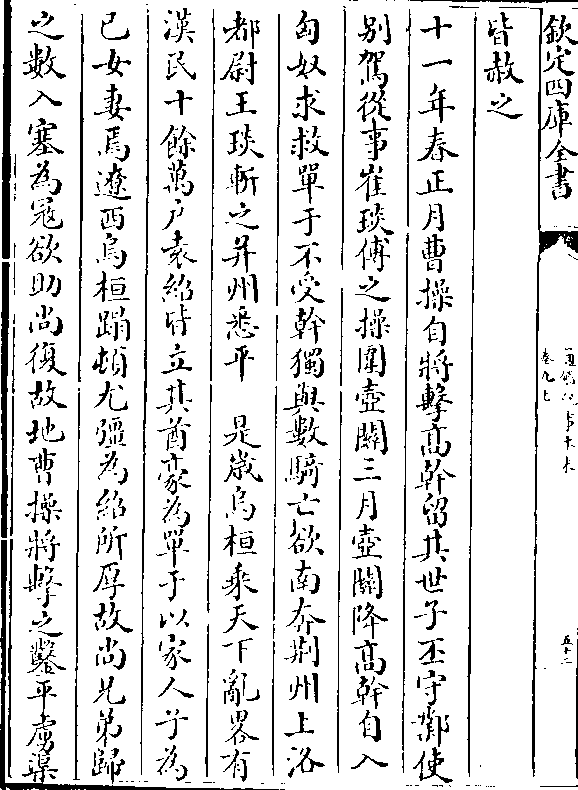 欽定四庫全書
卷九上
五十二
皆赦之
十一年春正月曹操自將擊高幹留其世子丕守鄴使
别駕從事崔琰傅之操圍壺關三月壺關降高幹自入
匈奴求救單于不受幹獨與數騎亡欲南奔荆州上洛
都尉王琰斬之并州悉平 是歲烏桓乘天下亂畧有
漢民十餘萬户袁紹皆立其酋豪為單于以家人子為
已女妻焉遼西烏桓蹋頓尤彊為紹所厚故尚兄弟歸
之數入塞為冦欲助尚復故地曹操將擊之鑿平虜渠